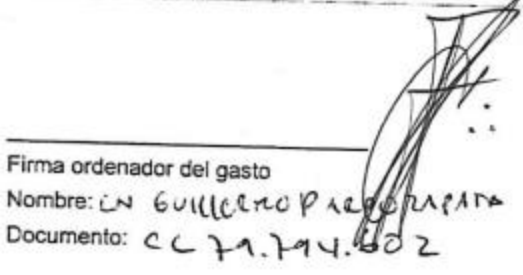 Firma ordenador del gasto
Nombre: CN GUILLERMO PARDO ZAPATA
Documento: CC 79.794.602